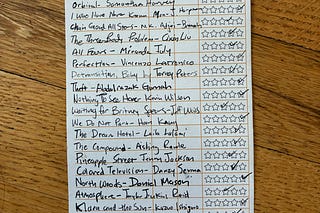 Orbital - Samantha Harvey
I Who Have Never Known Men -
Chain Gang All Stars - N.K. Adjei - Brenyah
The Three Body Problem - Cixin Liu
All Fours - Miranda July
Perfection - Vincenzo Latronico
Detransition Baby by Torrey Peters
Theft - Abdulrazak Gurnah
Nothing To See Here Kevin Wilson
Waiting for Britney Spears - Jeff Weiss
We Do Not Part - Han Kang
The Dream Hotel - Laila Lalami
The Compound - Aisling Rawle
Pineapple Street Jenny Jackson
Colored Television - Danzy Senna
North Woods - Daniel Mason
Atmosphere - Taylor Jenkins Reid
Klara and the Sun - Kazuo Ishiguro